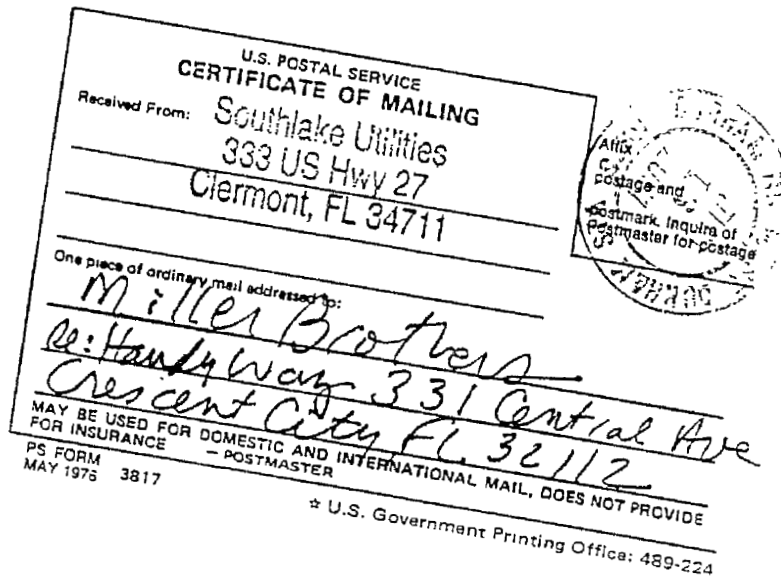 U.S. POSTAL SERVICE
CERTIFICATE OF MAILING
Received From:
Southlake Utilities
333 US Hwy 27
Clermont, FL 34711
Affix
postage and
postmark. Inquire of
Postmaster for postage
One piece of ordinary mail addressed to:
Miller Brothers
Re: Handy Way 331 Central Ave
Crescent City, FL 32112
MAY BE USED FOR DOMESTIC AND INTERNATIONAL MAIL, DOES NOT PROVIDE
FOR INSURANCE — POSTMASTER
PS FORM 3817
MAY 1976
☆ U.S. Government Printing Office: 489-224